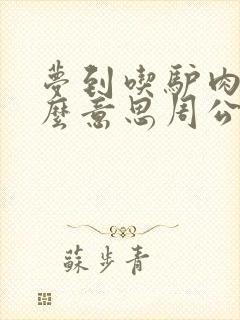 夢到喫驴肉
麼意思周公
蘇步青